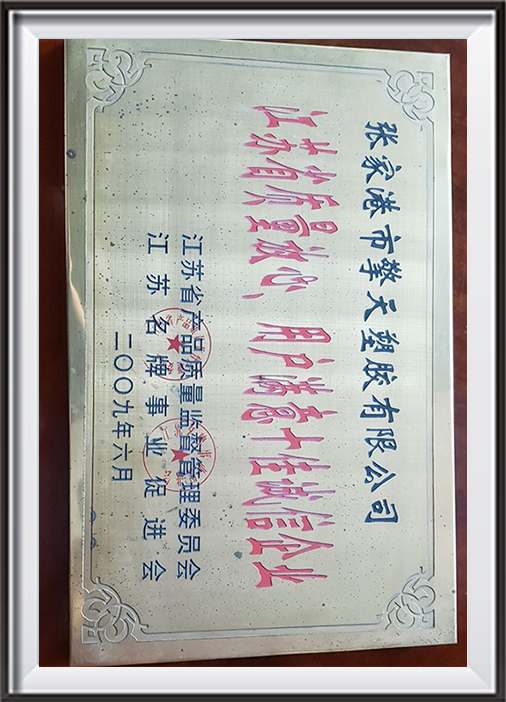 张家港市擎天塑胶有限公司
江苏省质量放心、用户满意十佳诚信企业
江苏省产品质量监督管理委员会
江苏名牌事业促进会
二〇〇九年六月